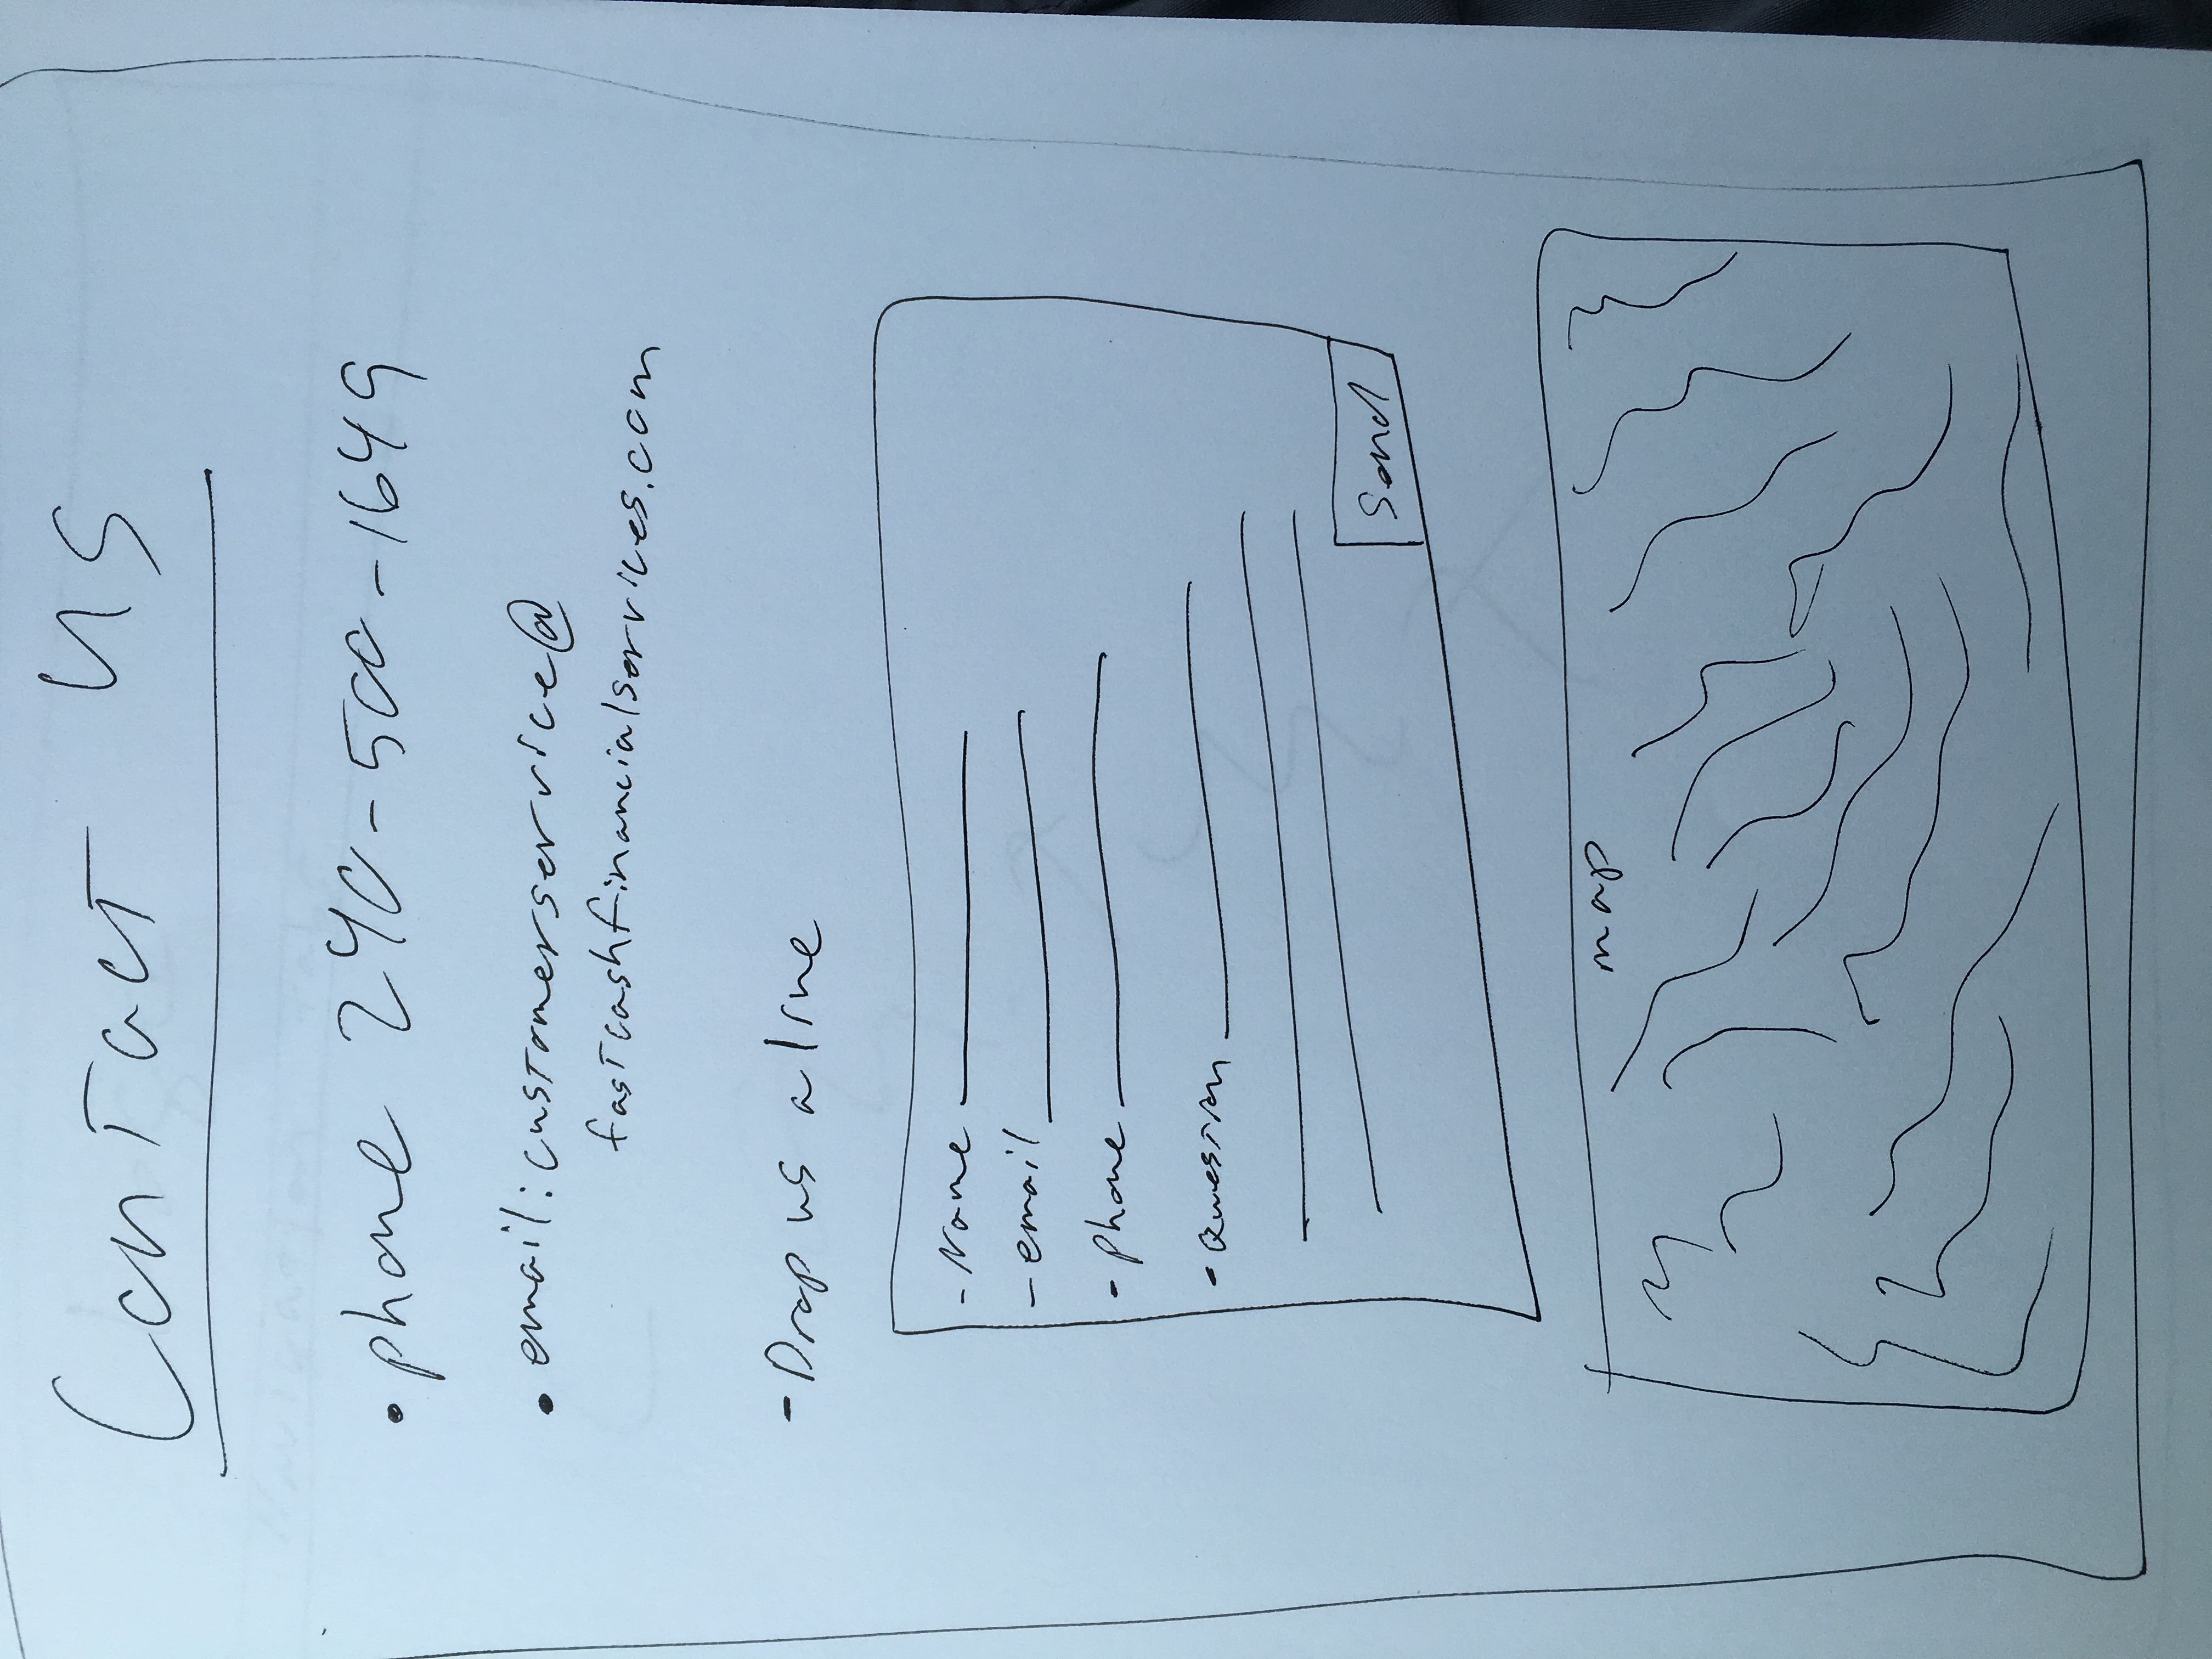 Contact us
• phone 240-500-1649
• email: customerservice@
fastcashfinancialservices.com
- Drop us a line
- Name
- email
- phone
- Question
Send
map